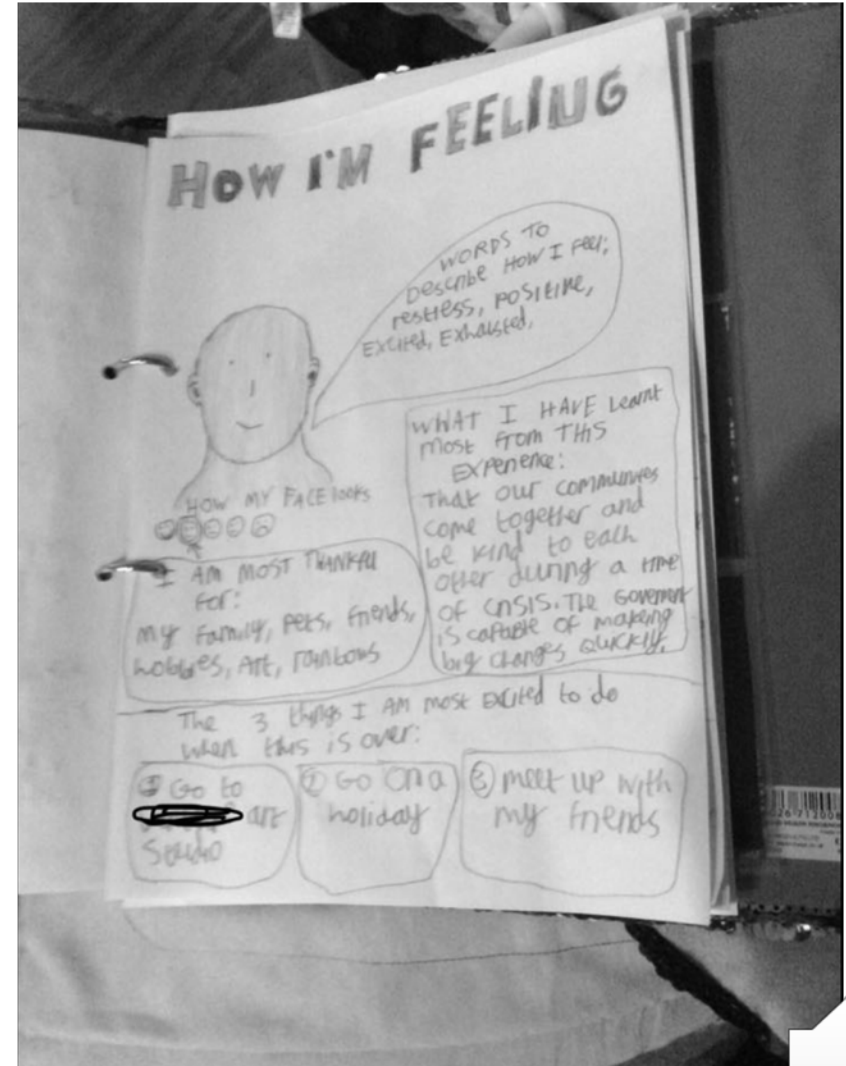 HOW I'M FEELING
WORDS TO
Describe How I Feel;
restless, positive,
Excited, Exhausted,
WHAT I HAVE Learnt
most from THIS
Experience:
That our communites
come together and
be kind to each
other during a time
of crisis. The Goverment
is capable of making
big changes quickly.
HOW MY FACE looks
I AM MOST THANKFUL
For:
my family, pets, friends,
hobbies, Art, rainbows
The 3 things I AM most excited to do
when this is over:
① Go to
art
Studio
② GO On a
holiday
③ meet up with
my friends